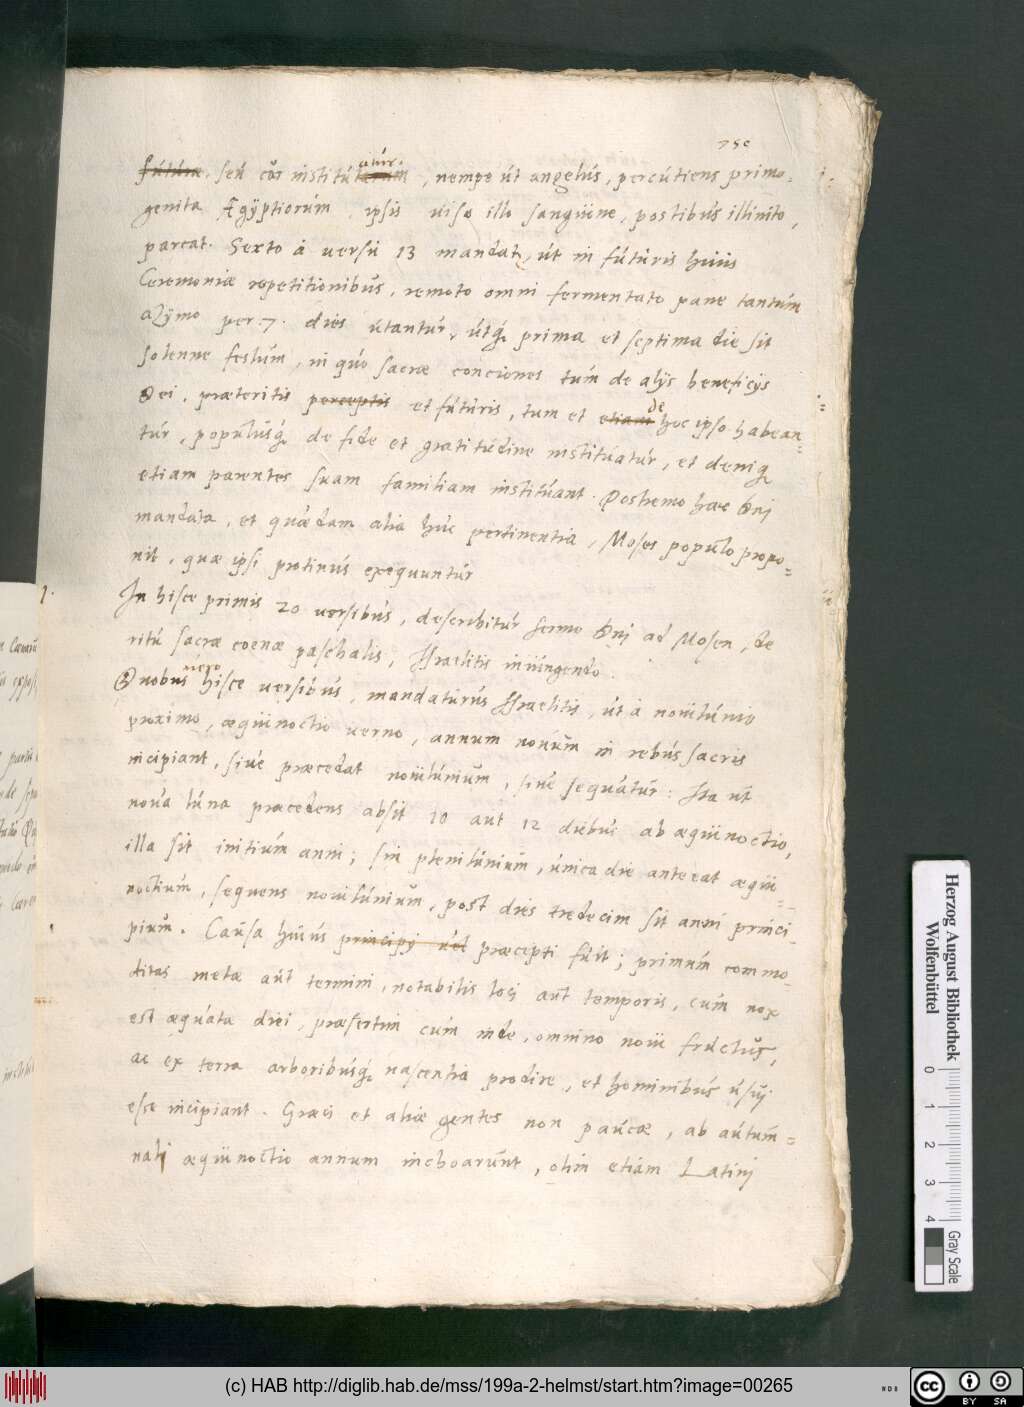 futura. seu cõr institutarum atur. , nempe ut angelus, percutiens primo=
genita Ægÿptiorum . ipsis viso illo sanguine, postibus illinito,
parcat. Sexto à versu 13 mandat, ut in futuris huius
Ceremoniæ repetitionibus, remoto omni fermentato pane tantum
azÿmo per .7. dies utantur, utq́ prima et septima die sit
solenne festum, in quo sacræ conciones tum de alijs beneficijs
Dei, præteritis perceptis et futuris, tum et etiam de hoc ipso habean=
tur, populusq́ de fide et gratitudine instituatur, et deniq́
etiam parentes suam familiam instituant. Postremo hæc Dñj
mandata, et quædam alia huc pertinentia, Moses populo propo=
nit, quæ ipsi protinus exequuntur
1. In hisce primis 20 versibus, describitur sermo Dñj ad Mosen, de
ritu sacræ coenæ paschalis, Israelitis iniungendo.
Duobus vero hisce versibus, mandaturus Israelitis, ut à novilunio
proximo, æquinoctio verno, annum novum in rebus sacris
incipiant, sive præcedat novilunium, sive sequatur: Ita ut
nova luna præcedens absit 10 aut 12 diebus ab æquinoctio,
illa sit initium anni; sin plenilunium, unica die anteeat æqui=
noctium, sequens novilunium, post dies tredecim sit anni princi=
pium. Causa huius principij vel præcepti fuit; primum commo=
ditas metæ aut termini, notabilis loci aut temporis, cum nox
est æquata diei, præsertim cum inde, omnino novi fructus,
ac ex terra arboribusq́ nascentia prodire, et hominibus usuj
esse incipiant. Græci et aliæ gentes non paucæ, ab autum=
nali æquinoctio annum inchoarunt, olim etiam Latinj
Herzog August Bibliothek
Wolfenbüttel
0 1 2 3 4
Gray Scale
(c) HAB http://diglib.hab.de/mss/199a-2-helmst/start.htm?image=00265
cc BY SA